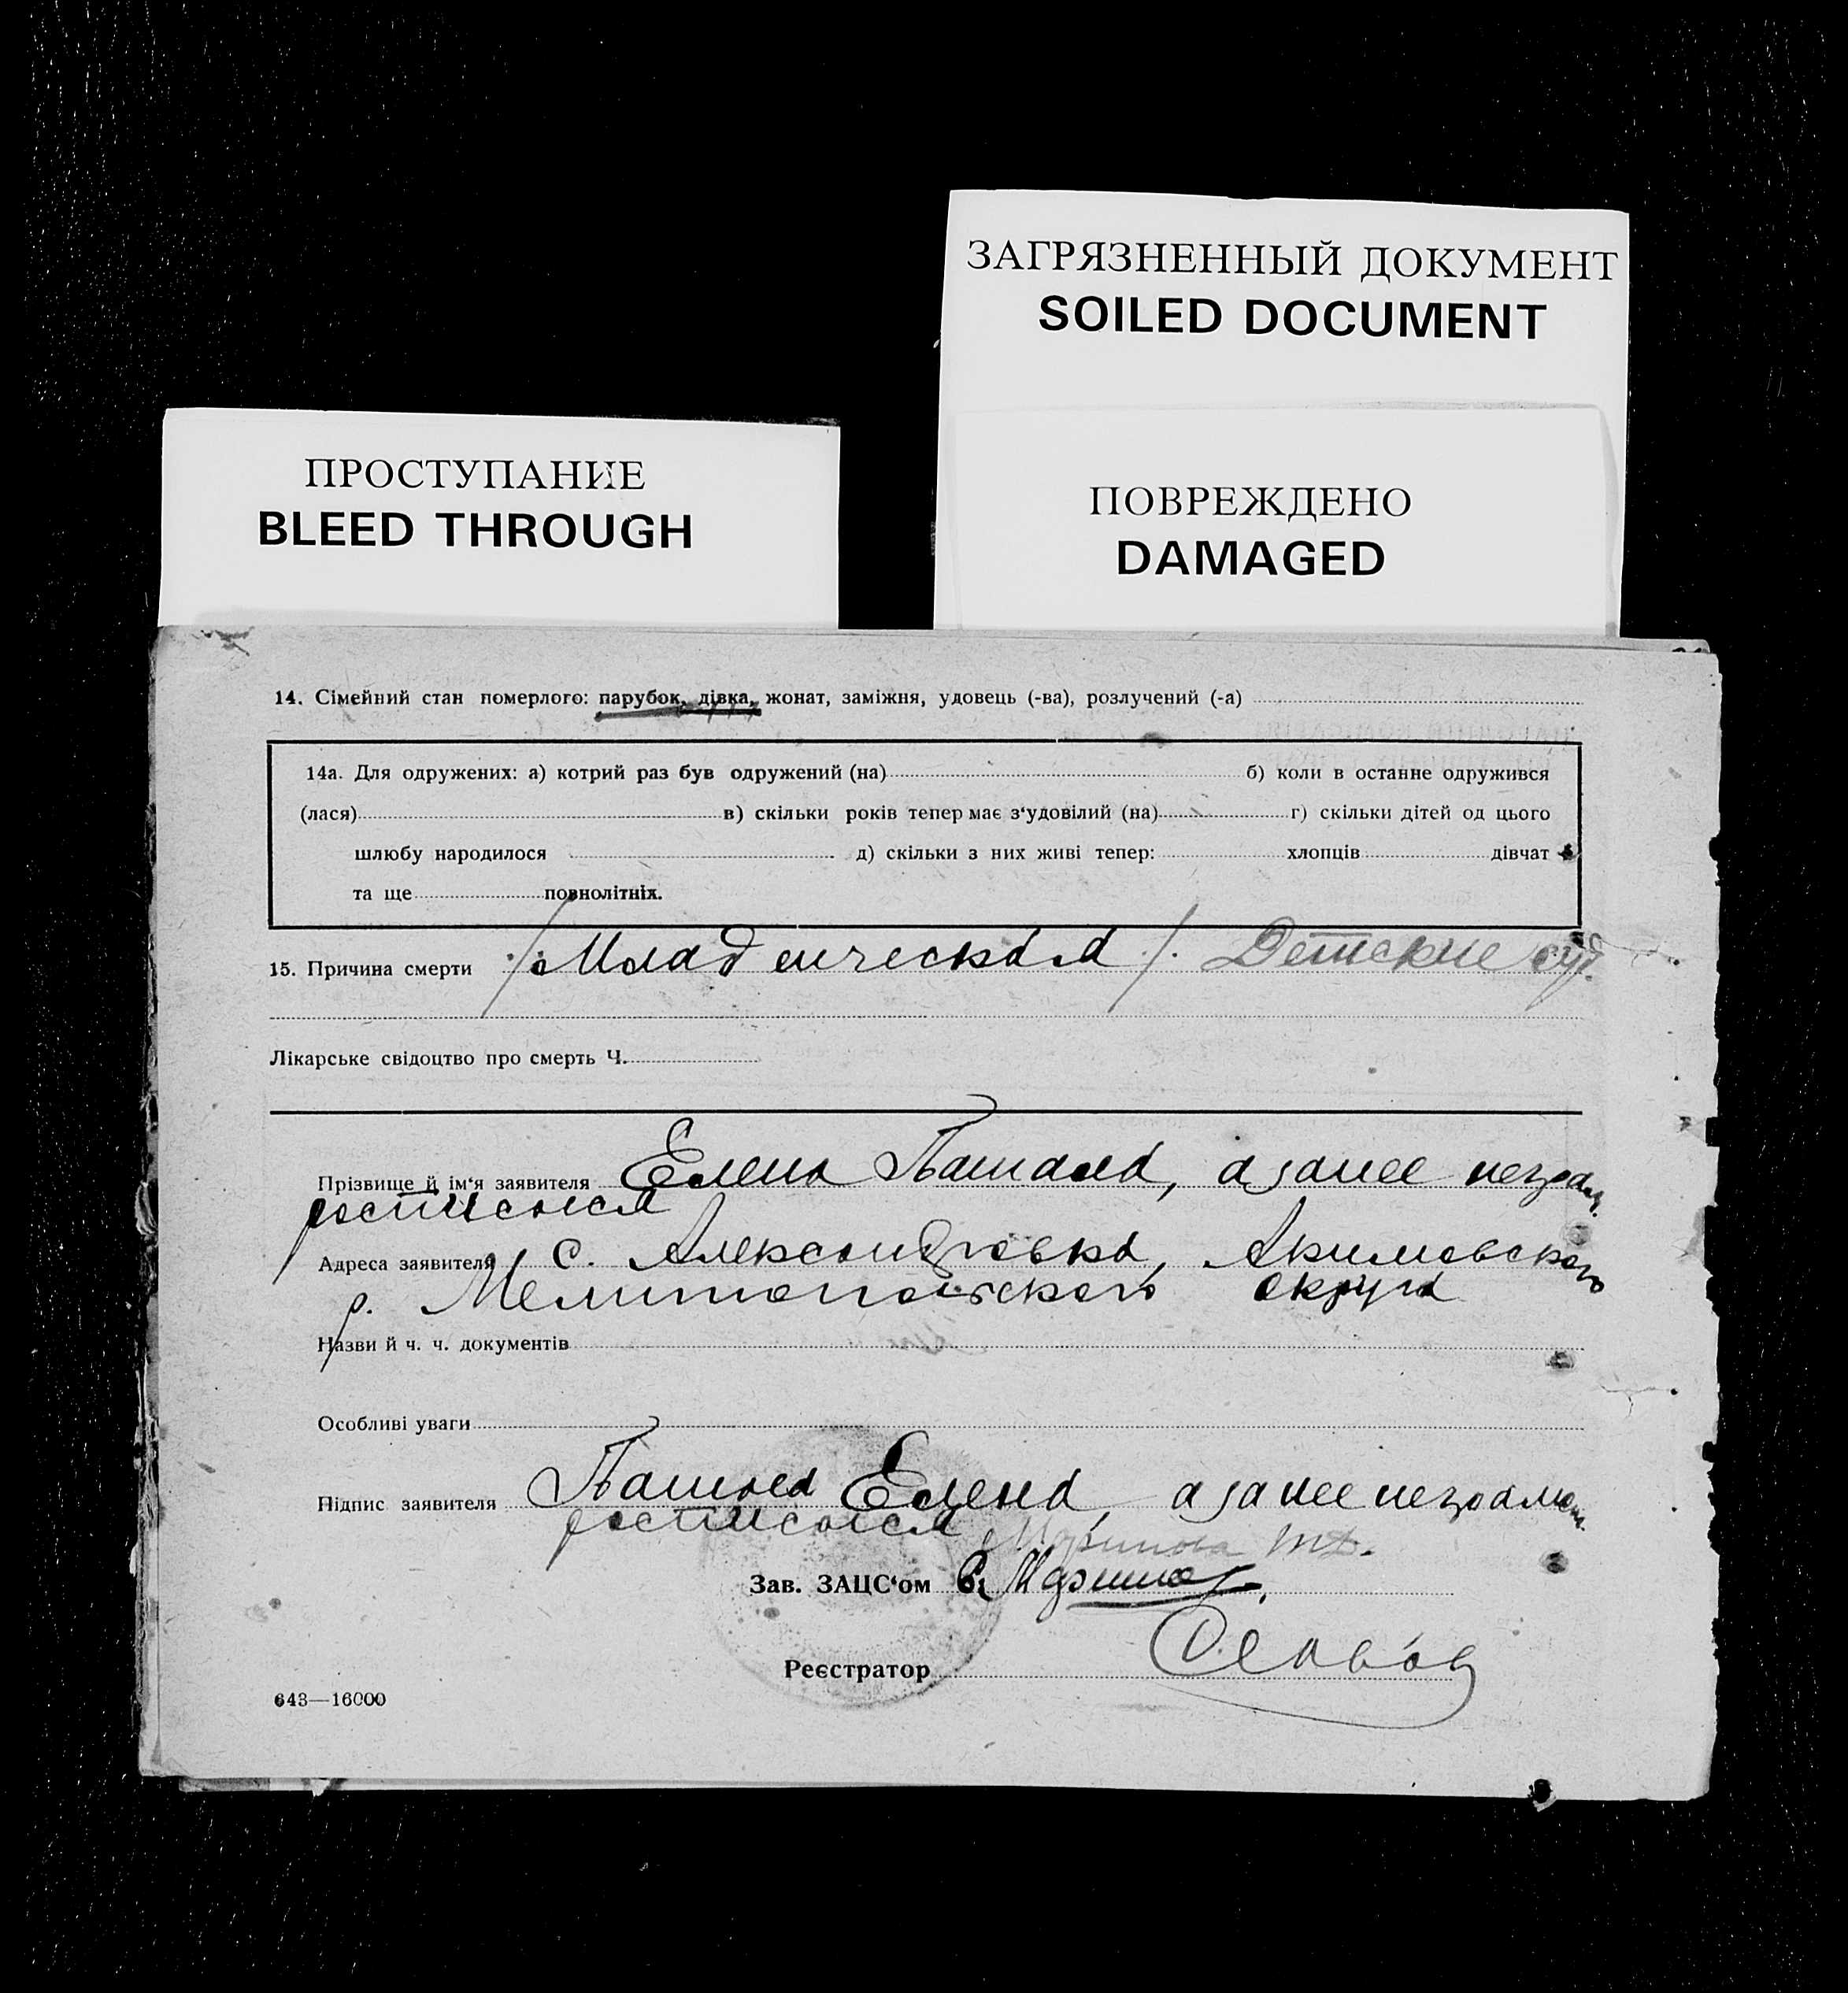 ЗАГРЯЗНЕННЫЙ ДОКУМЕНТ
SOILED DOCUMENT
ПРОСТУПАНИЕ
BLEED THROUGH
ПОВРЕЖДЕНО
DAMAGED
14. Сімейний стан померлого: парубок, дівка, жонат, заміжня, удовець (-ва), розлучений (-а)
14а. Для одружених: а) котрий раз був одружений (на) б) коли в останне одружився
(лася) в) скільки років тепер має з‘удовілий (на) г) скільки дітей од цього
шлюбу народилося д) скільки з них живі тепер: хлопців дівчат
та ще повнолітніх.
15. Причина смерти Младенческая Детские
Лікарське свідоцтво про смерть Ч.
Прізвище й ім‘я заявителя Елена, а за нее
росписался
Адреса заявителя с. Александровка, Акимовского
р. Мелитопольского округа
Назви й ч. ч. документів
Особливі уваги
Підпис заявителя Елена, а за нее
росписался
Зав. ЗАЦС‘ом
Реєстратор
643—16000